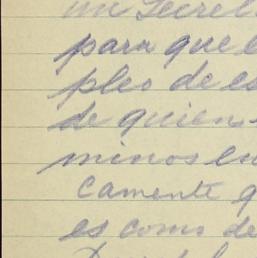 un Secre
para que e
pleo de es
de quien-
minos en
camente q
es como de